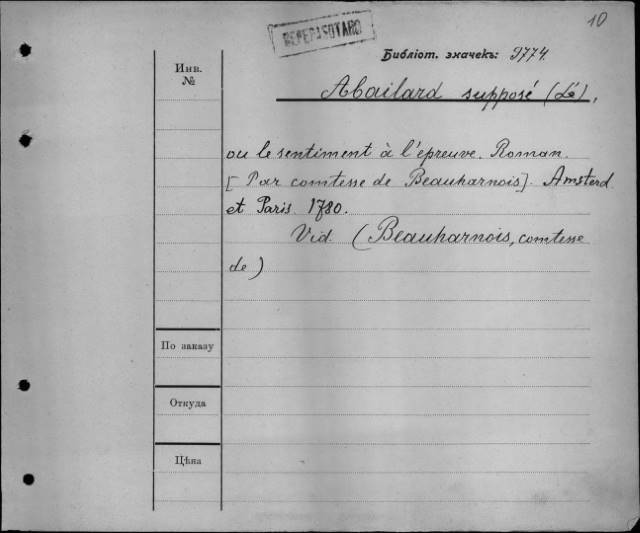 10
REPERASOTARO
Библіот. значекъ: 9774.
Инв.
№
Abailard supposé (Le),
ou le sentiment à l'épreuve. Roman.
[Par comtesse de Beauharnois]. Amsterd.
et Paris. 1780.
Vid. (Beauharnois, comtesse
de)
По заказу
Откуда
Цѣна